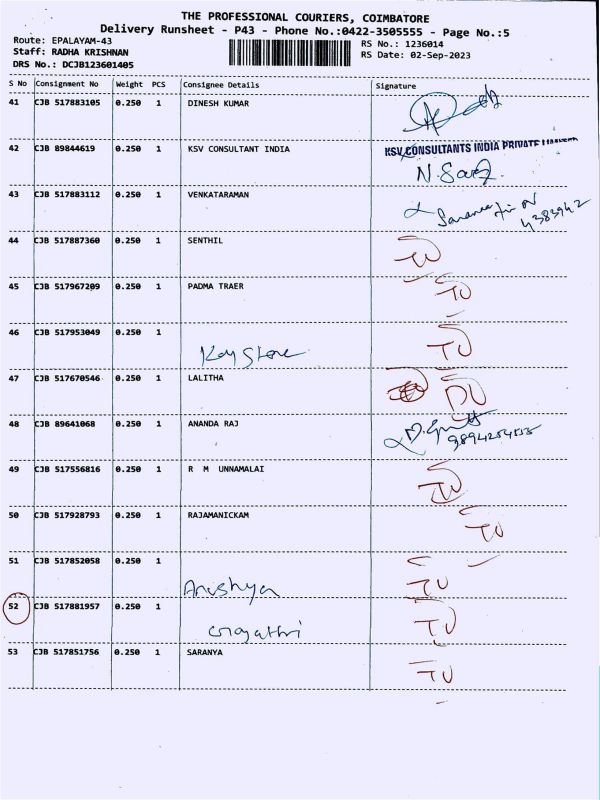 THE PROFESSIONAL COURIERS, COIMBATORE
Delivery Runsheet - P43 - Phone No.:0422-3505555 - Page No.:5
Route: EPALAYAM-43
RS No.: 1236014
Staff: RADHA KRISHNAN
RS Date: 02-Sep-2023
DRS No.: DCJB123601405
S No Consignment No Weight PCS Consignee Details Signature
41 CJB 517883105 0.250 1 DINESH KUMAR
42 CJB 89844619 0.250 1 KSV CONSULTANT INDIA KSV CONSULTANTS INDIA PRIVATE LIMITED
43 CJB 517883112 0.250 1 VENKATARAMAN
44 CJB 517887360 0.250 1 SENTHIL
45 CJB 517967209 0.250 1 PADMA TRAER TU
46 CJB 517953049 0.250 1 TU
Key Stone
47 CJB 517670546 0.250 1 LALITHA DU
48 CJB 89641068 0.250 1 ANANDA RAJ
49 CJB 517556816 0.250 1 R M UNNAMALAI TU
50 CJB 517928793 0.250 1 RAJAMANICKAM TU
51 CJB 517852058 0.250 1 TU
Anishya
52 CJB 517881957 0.250 1 TU
Gayathri
53 CJB 517851756 0.250 1 SARANYA TU